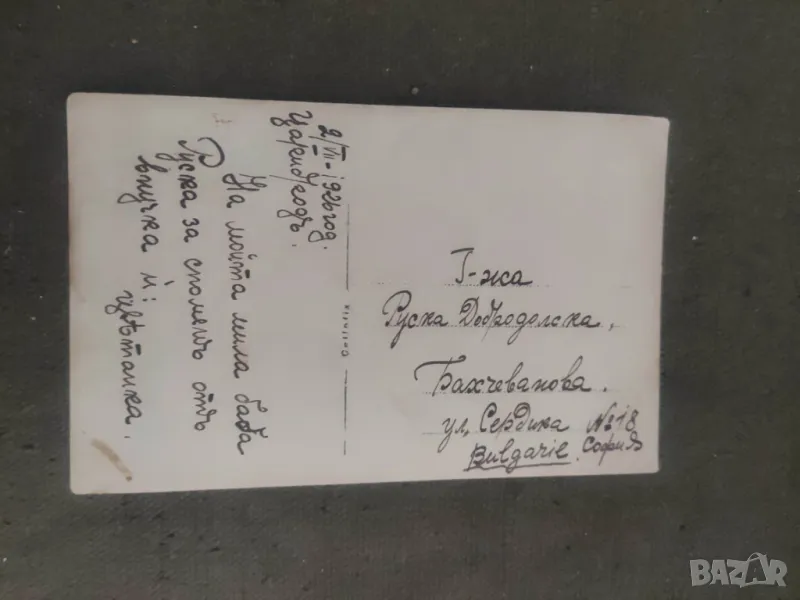 2/VII-1926 год.
Царибродъ.
На мойта мила баба
Руска за споменъ отъ
внучка ѝ:
Цвѣтанка.
Г-жа
Руска Добродолска,
Бахчеванова.
ул. Сердика №18
Bulgarie. София
BAZAR